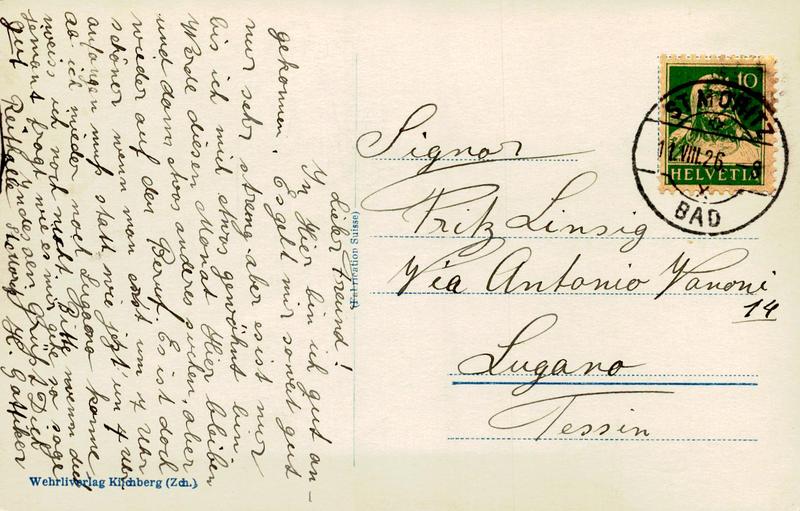 Lieber Freund!
In Hier bin ich gut an-
gekommen. Es geht mir soweit gut
nur sehr streng aber es ist nur
bis ich mich etwas gewöhnt bin.
Werde diesen Monat Hier bleiben
und dann etwas anderes suchen, aber
wieder auf den Beruf. Es ist doch
schöner wenn man erst um 7 Uhr
anfangen muß statt wie jetzt um 4 Uhr.
Ob ich wieder nach Lugano komme
weiss ich noch nicht. Bitte wenn dich
jemant fragt wie es mir geht so sage
gut. Indessen Grüßt Dich
Reithalle St Moritz H. Gattiker
Wehrliverlag Kilchberg (Zch.)
(Fabrication Suisse)
10
HELVETIA
ST. MORITZ
11.VIII.26
BAD
Signor
Fritz Linsig
Via Antonio Vanoni
14
Lugano
Tessin